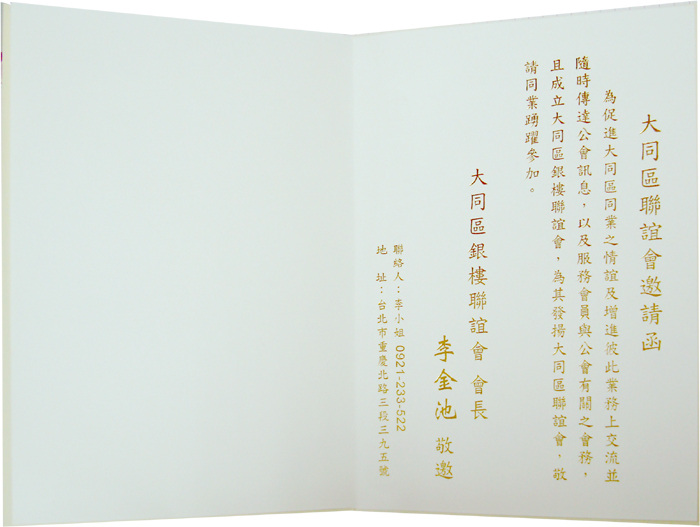 大同區聯誼會邀請函
為促進大同區同業之情誼及增進彼此業務上交流並
隨時傳達公會訊息，以及服務會員與公會有關之會務，
且成立大同區銀樓聯誼會，為其發揚大同區聯誼會，敬
請同業踴躍參加。
大同區銀樓聯誼會 會長
李金池 敬邀
聯絡人：李小姐 0921-233-522
地 址：台北市重慶北路三段三九五號